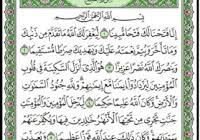 بِسْمِ اللَّهِ الرَّحْمَٰنِ الرَّحِيمِ
إِنَّا فَتَحْنَا لَكَ فَتْحًا مُّبِينًا ١ لِّيَغْفِرَ لَكَ اللَّهُ مَا تَقَدَّمَ مِن ذَنبِكَ
وَمَا تَأَخَّرَ وَيُتِمَّ نِعْمَتَهُ عَلَيْكَ وَيَهْدِيَكَ صِرَاطًا مُّسْتَقِيمًا ٢
وَيَنصُرَكَ اللَّهُ نَصْرًا عَزِيزًا ٣ هُوَ الَّذِي أَنزَلَ السَّكِينَةَ فِي قُلُوبِ
الْمُؤْمِنِينَ لِيَزْدَادُوا إِيمَٰنًا مَّعَ إِيمَٰنِهِمْ وَلِلَّهِ جُنُودُ السَّمَٰوَٰتِ
وَالْأَرْضِ وَكَانَ اللَّهُ عَلِيمًا حَكِيمًا ٤ لِّيُدْخِلَ الْمُؤْمِنِينَ وَالْمُؤْمِنَٰتِ
جَنَّٰتٍ تَجْرِي مِن تَحْتِهَا الْأَنْهَٰرُ خَٰلِدِينَ فِيهَا وَيُكَفِّرَ عَنْهُمْ